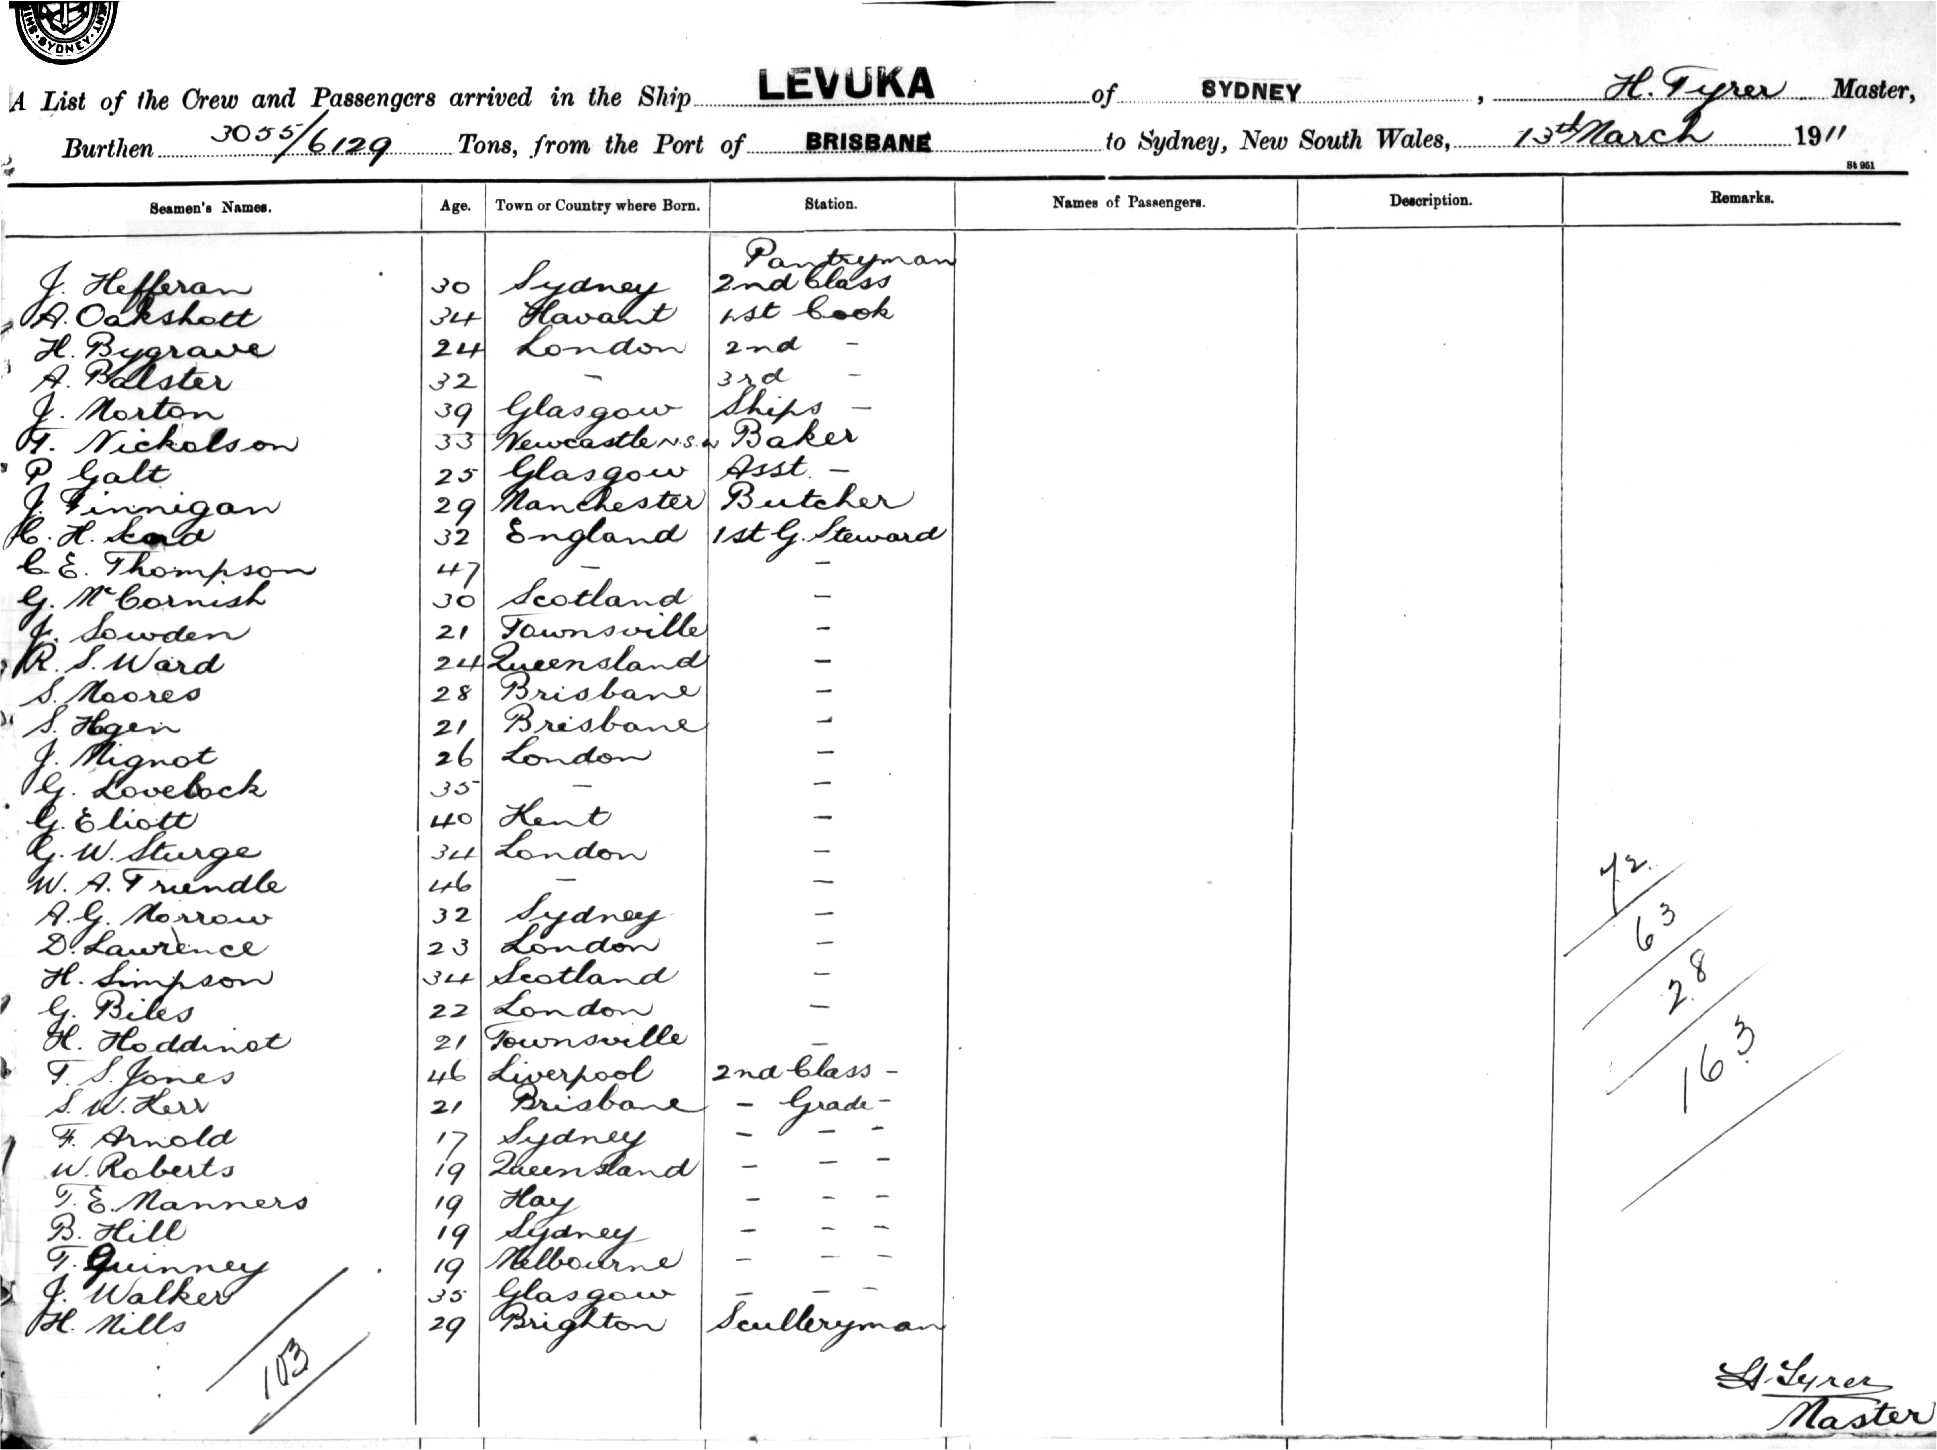 SYDNEY
A List of the Crew and Passengers arrived in the Ship LEVUKA of SYDNEY, H. Tyrer Master,
Burthen 3055/6129 Tons, from the Port of BRISBANE to Sydney, New South Wales, 13th March 1911
St 951
Seamen's Names. Age. Town or Country where Born. Station. Names of Passengers. Description. Remarks.
Pantryman
J. Hefferan 30 Sydney 2nd Class
A. Oakshott 34 Havant 1st Cook
H. Bygrave 24 London 2nd -
A. Balster 32 - 3rd -
J. Morton 39 Glasgow Ships -
T. Nickolson 33 Newcastle N.S.W Baker
P Galt 25 Glasgow Asst. -
J. Finnigan 29 Manchester Butcher
C. H. 32 England 1st G. Steward
C. E. Thompson 47 - -
G. McCornish 30 Scotland -
J. Sowden 21 Townsville -
R. S. Ward 24 Queensland -
S. Moores 28 Brisbane -
S. 21 Brisbane -
J. Mignot 26 London -
G. Lovelock 35 - -
G. Eliott 40 Kent -
G. W. Sturge 34 London -
W. A. Trundle 46 - -
A. G. Morrow 32 Sydney -
D. Lawrence 23 London -
H. Simpson 34 Scotland -
G. Biles 22 London -
H. Hoddinot 21 Townsville -
T. S. Jones 46 Liverpool 2nd Class -
S. W. Kerr 21 Brisbane - Grade -
F. Arnold 17 Sydney - - -
W. Roberts 19 Queensland - - -
T. E. Manners 19 Hay - - -
B. Hill 19 Sydney - - -
T. Quinney 19 Melbourne - - -
J. Walker 35 Glasgow - - -
H. Mills 29 Brighton Sculleryman
103
72
63
28
163
H. Tyrer
Master